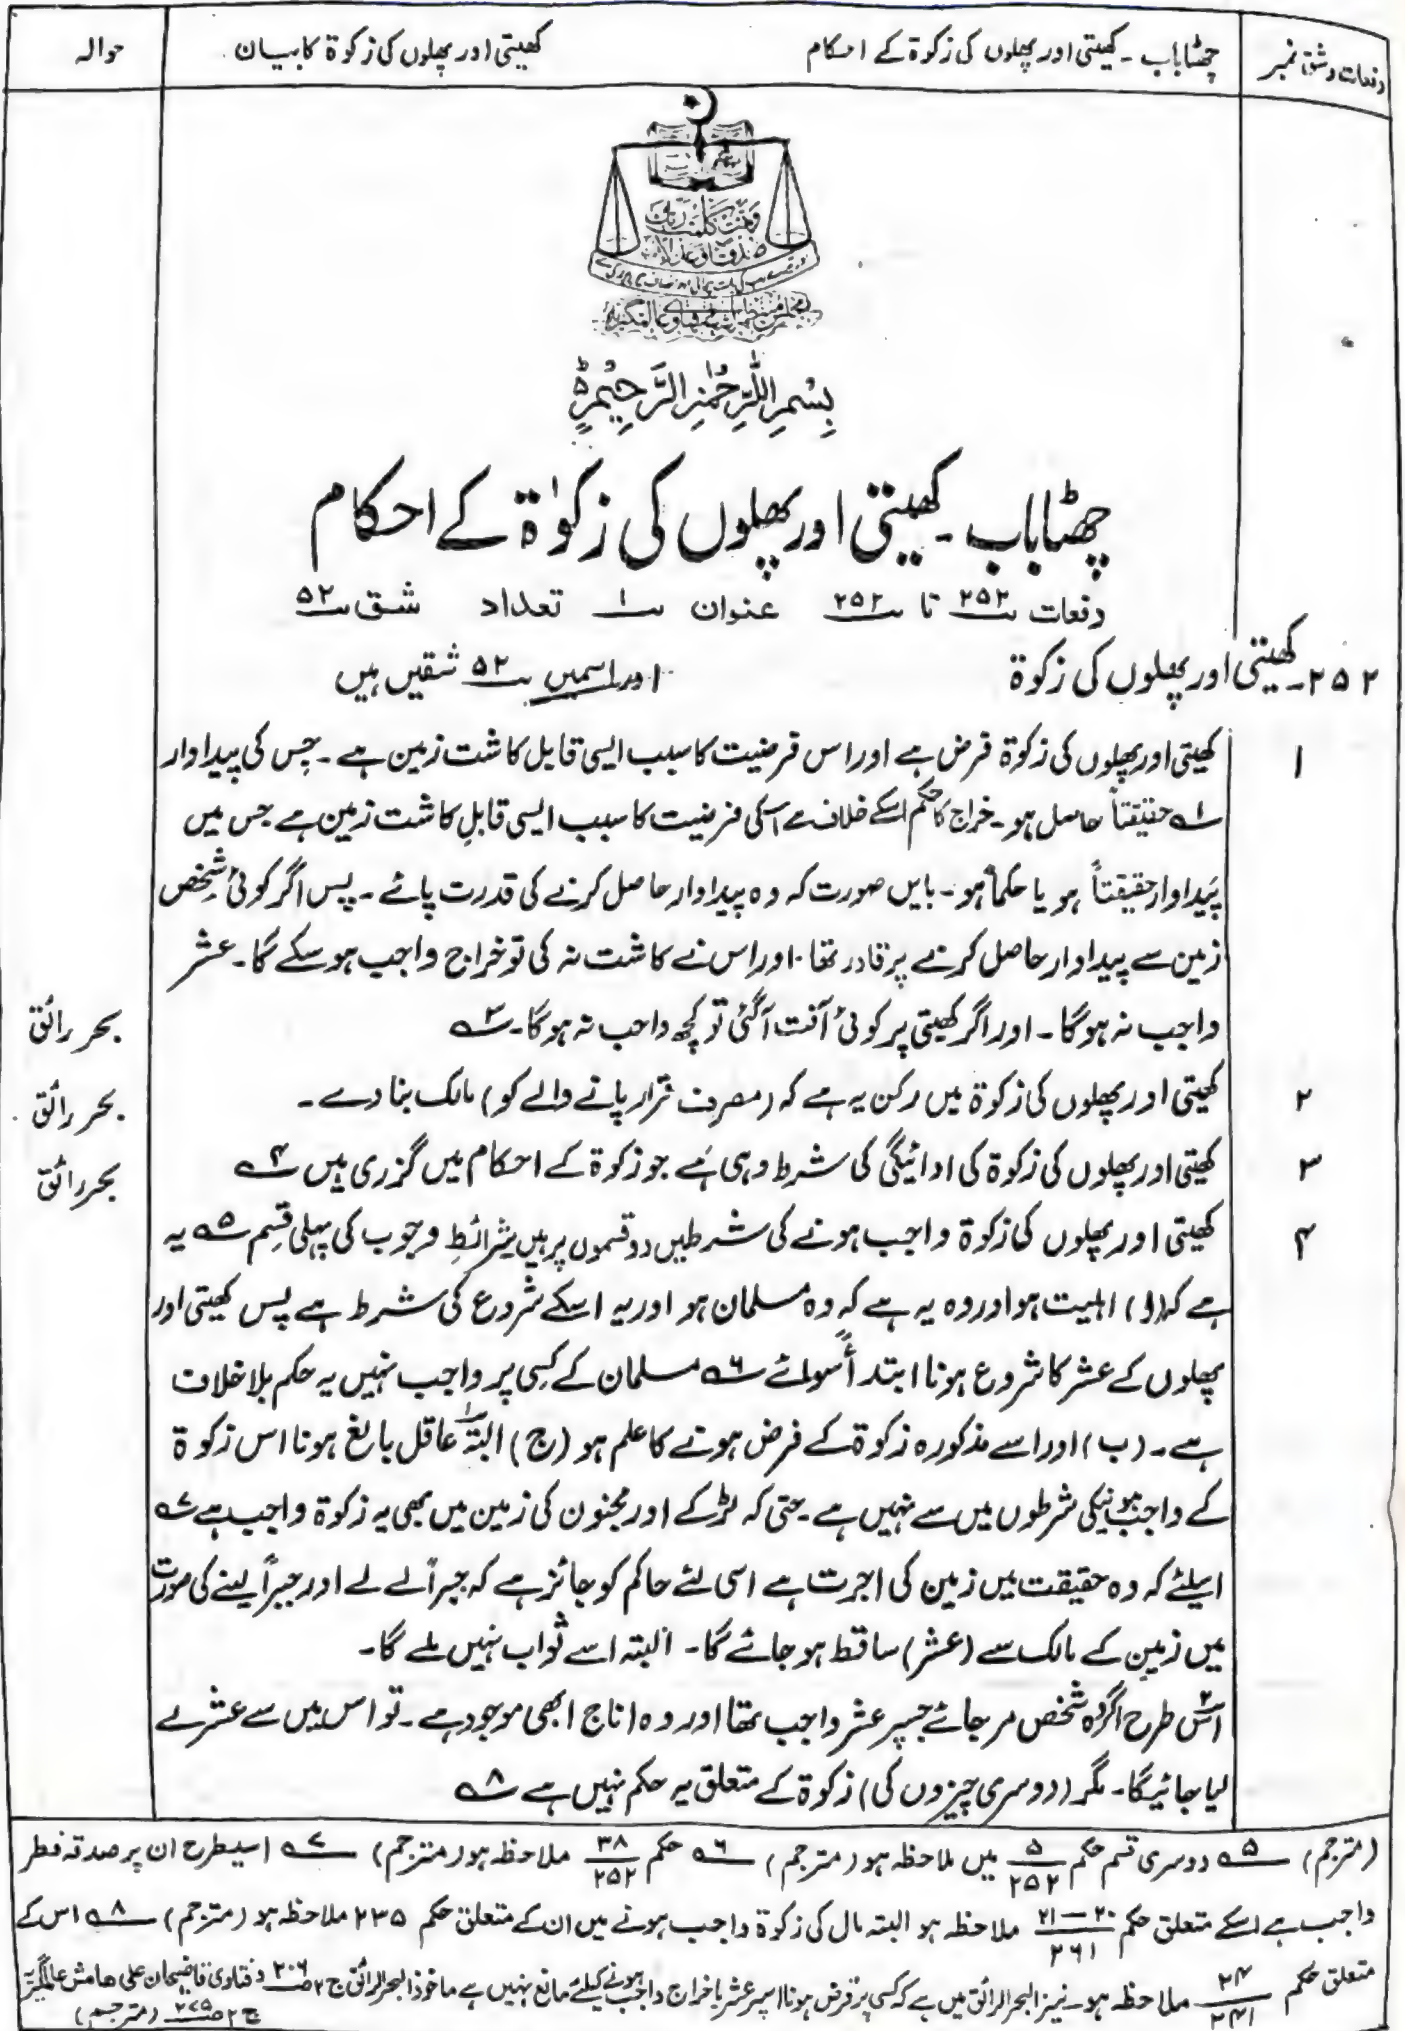 دفعات و شق نمبر
چھٹا باب ۔ کھیتی اور پھلوں کی زکوٰۃ کے احکام
کھیتی اور پھلوں کی زکوٰۃ کا بیان
حوالہ
وَتَمَّتْ كَلِمَتُ رَبِّكَ
صِدْقًا وَّعَدْلًا
بِسْمِ اللّٰهِ الرَّحْمٰنِ الرَّحِيْمِ
چھٹا باب ۔ کھیتی اور پھلوں کی زکوٰۃ کے احکام
دفعات ۲۵۲ تا ۲۵۲ عنوان ۱ تعداد شق ۵۲
۲۵۲۔ کھیتی اور پھلوں کی زکوٰۃ اور اسمیں ۵۲ شقیں ہیں
۱ کھیتی اور پھلوں کی زکوٰۃ فرض ہے اور اس فرضیت کا سبب ایسی قابل کاشت زمین ہے ۔ جس کی پیداوار
؎۱ حقیقتاً حاصل ہو ۔ خراج کا حکم اسکے خلاف ہے اسکی فرضیت کا سبب ایسی قابلِ کاشت زمین ہے جس میں
پیداوار حقیقتاً ہو یا حکماً ہو ۔ بایں صورت کہ وہ پیداوار حاصل کرنے کی قدرت پائے ۔ پس اگر کوئی شخص
زمین سے پیداوار حاصل کرنے پر قادر تھا اور اس نے کاشت نہ کی تو خراج واجب ہو سکے گا ۔ عشر
واجب نہ ہوگا ۔ اور اگر کھیتی پر کوئی آفت آگئی تو کچھ واجب نہ ہوگا ۔ ؎ بحر رائق
۲ کھیتی اور پھلوں کی زکوٰۃ میں رکن یہ ہے کہ (مصرف قرار پانے والے کو) مالک بنا دے ۔ بحر رائق
۳ کھیتی اور پھلوں کی زکوٰۃ کی ادائیگی کی شرط وہی ہے جو زکوٰۃ کے احکام میں گزری ہیں ؎۴ بحر رائق
۴ کھیتی اور پھلوں کی زکوٰۃ واجب ہونے کی شرطیں دو قسموں پر ہیں شرائطِ وجوب کی پہلی قسم ؎۵ یہ
ہے کہ (ا) اہلیت ہو اور وہ یہ ہے کہ وہ مسلمان ہو اور یہ اسکے شروع کی شرط ہے پس کھیتی اور
پھلوں کے عشر کا شروع ہونا ابتداً سوائے ؎۶ مسلمان کے کسی پر واجب نہیں یہ حکم بلا خلاف
ہے ۔ (ب) اور اسے مذکورہ زکوٰۃ کے فرض ہونے کا علم ہو (ج) البتہ عاقل بالغ ہونا اس زکوٰۃ
کے واجب ہونیکی شرطوں میں سے نہیں ہے حتی کہ لڑکے اور مجنون کی زمین میں بھی یہ زکوٰۃ واجب ہے ؎۷
اسلئے کہ وہ حقیقت میں زمین کی اجرت ہے اسی لئے حاکم کو جائز ہے کہ جبراً لے لے اور جبراً لینے کی صورت
میں زمین کے مالک سے (عشر) ساقط ہو جائے گا ۔ البتہ اسے ثواب نہیں ملے گا ۔
اسی طرح اگر وہ شخص مر جائے جسپر عشر واجب تھا اور وہ اناج ابھی موجود ہے ۔ تو اس میں سے عشر لے
لیا جائیگا ۔ مگر (دوسری چیزوں کی) زکوٰۃ کے متعلق یہ حکم نہیں ہے ؎۸
(مترجم) ؎۵ دوسری قسم حکم ۵/۲۵۲ میں ملاحظہ ہو (مترجم) ؎۶ حکم ۳۸/۲۵۲ ملاحظہ ہو (مترجم) ؎۷ اسیطرح ان پر صدقہ فطر
واجب ہے اسکے متعلق حکم ۲۰-۲۱/۲۶۱ ملاحظہ ہو البتہ مال کی زکوٰۃ واجب ہونے میں ان کے متعلق حکم ۲۳۵ ملاحظہ ہو (مترجم) ؎۸ اس کے
متعلق حکم ۲۴/۲۴۱ ملاحظہ ہو ۔ نیز البحر الرائق میں ہے کہ کسی پر قرض ہونا اسپر عشر یا خراج واجب ہونے کیلئے مانع نہیں ہے ماخوذ البحر الرائق ج ۲ ص ۲۰۶ و فتاوی قاضیخان علی ھامش عالمگیریۃ
ج ۲ ص ۲۷۵ (مترجم)